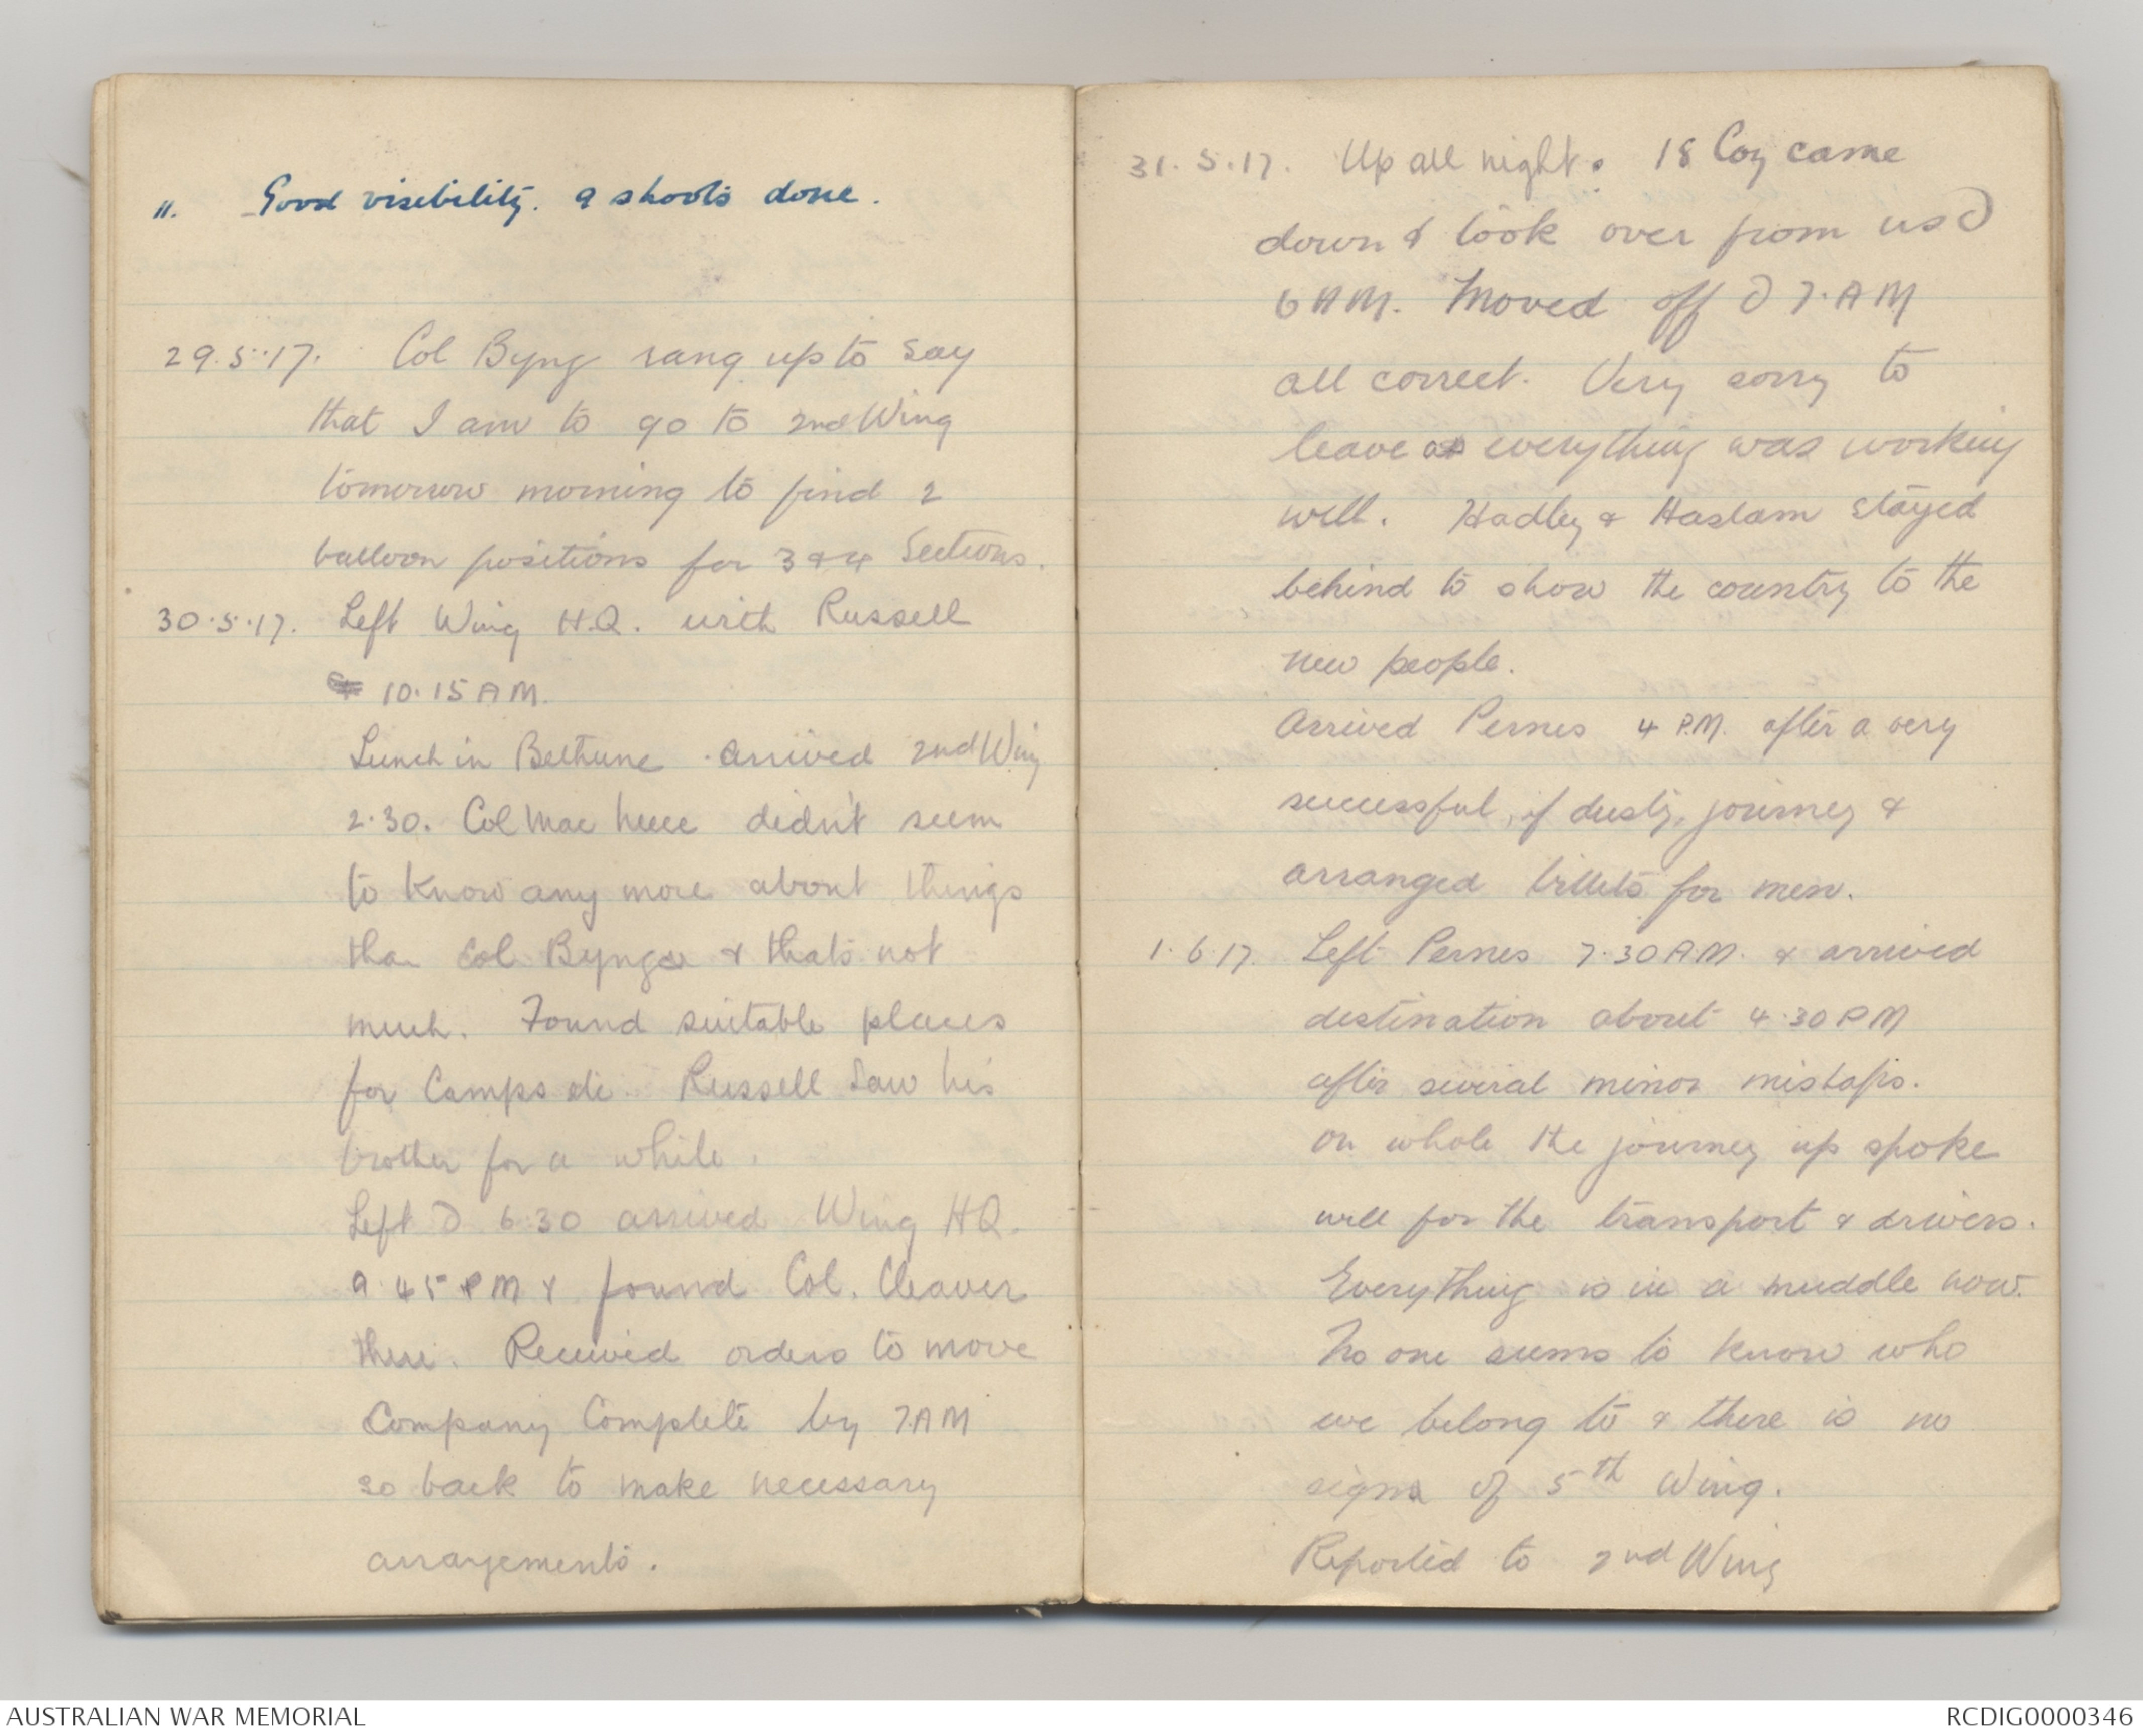 ". Good visibility. 9 shoots done.
29.5.17. Col Byng rang up to say
that I am to go to 2nd Wing
tomorrow morning to find 2
balloon positions for 3 & 4 Sections.
30.5.17. Left Wing H.Q. with Russell
10.15 AM.
Lunch in Bethune. Arrived 2nd Wing
2.30. Col Mac didn't seem
to know any more about things
than Col Byng & thats not
much. Found suitable places
for Camps etc. Russell saw his
brother for a while.
Left @ 6.30 arrived Wing HQ.
9.45 PM & found Col. Cleaver
there. Received orders to move
Company Complete by 7AM
so back to make necessary
arrangements.
31.5.17. Up all night. 18 Coy came
down & took over from us @
6 AM. Moved off @ 7.AM
all correct. Very sorry to
leave as everything was working
well. Hadley & Haslam stayed
behind to show the country to the
new people.
Arrived Pernes 4 P.M. after a very
successful, if dusty, journey &
arranged billets for men.
1.6.17. Left Pernes 7.30 A.M. & arrived
destination about 4.30 PM
after several minor mishaps.
On whole the journey up spoke
well for the transport & drivers.
Everything is in a muddle now.
No one seems to know who
we belong to & there is no
signs of 5th Wing.
Reported to 2nd Wing
AUSTRALIAN WAR MEMORIAL
RCDIG0000346